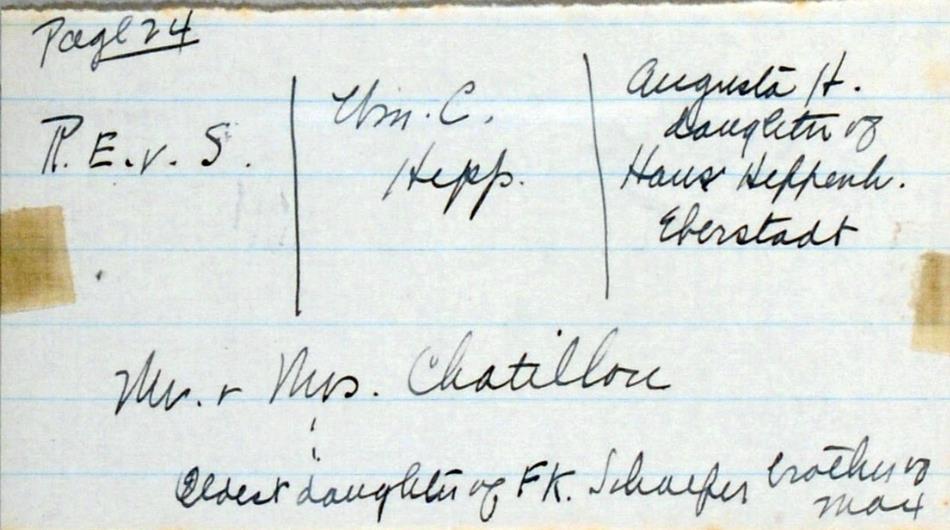 Page 24
R. E. v. S.
Wm. C.
Hepp.
Augusta H.
daughter of
Hans Heppenh.
Eberstadt
Mr. & Mrs. Chatillon
Oldest daughter of F.K. Schaefer brother of
Max